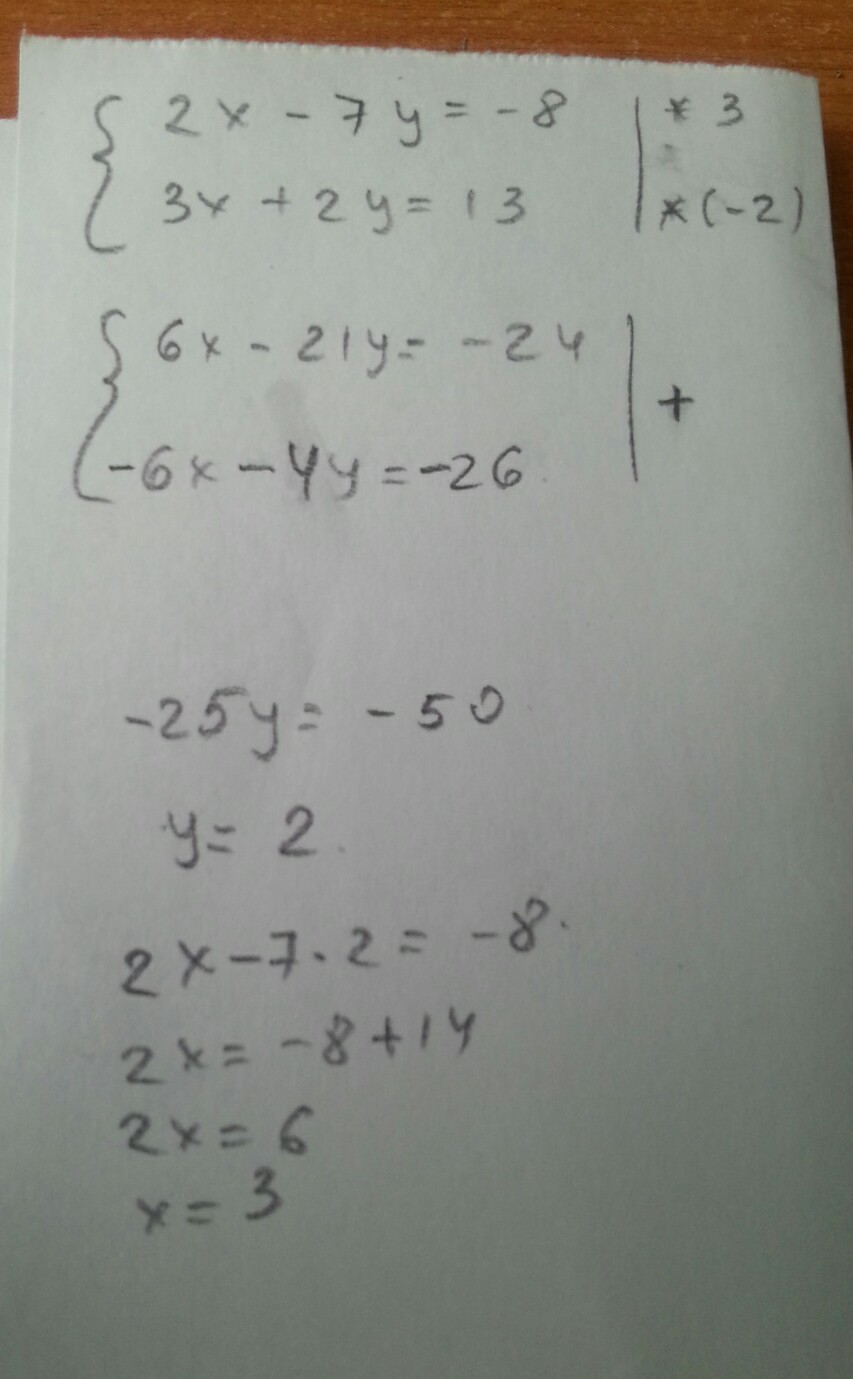 { 2x - 7y = -8 | * 3
3x + 2y = 13 | * (-2)
{ 6x - 21y = -24 | +
-6x - 4y = -26
-25y = -50
y = 2
2x - 7 · 2 = -8
2x = -8 + 14
2x = 6
x = 3